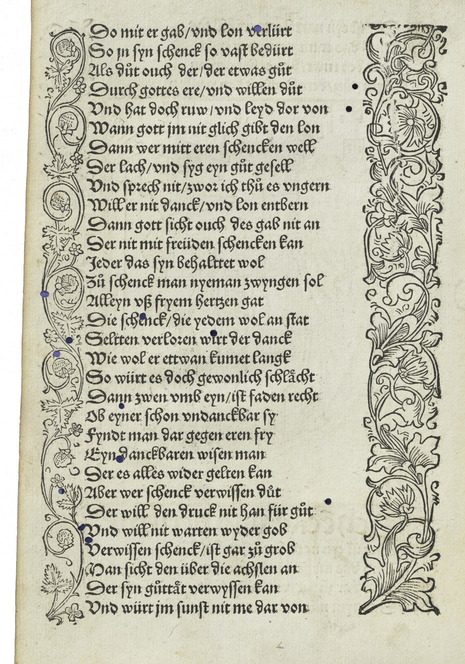 Do mit er gab/vnd lon verlürt
So jn syn schenck so vast bedürt
Als důt ouch der/der etwas gůt
Durch gottes ere/vnd willen důt
Vnd hat doch ruw/vnd leyd dor von
Wann gott jm nit glich gibt den lon
Dann wer mitt eren schencken well
Der lach/vnd syg eyn gůt gesell
Vnd sprech nit/zwor ich thů es vngern
Will er nit danck/vnd lon entbern
Dann gott sicht ouch des gab nit an
Der nit mit freüden schencken kan
Jeder das syn behalttet wol
Zů schenck man nyeman zwyngen sol
Alleyn vß fryem hertzen gat
Die schenck/die yedem wol an stat
Seltten verloren wirt der danck
Wie wol er ettwan kumet langk
So würt es doch gewonlich schlächt
Dann zwen vmb eyn/ist faden recht
Ob eyner schon vndanckbar sy
Fyndt man dar gegen eren fry
Eyn danckbaren wisen man
Der es alles wider gelten kan
Aber wer schenck verwissen důt
Der will den druck nit han für gůt
Vnd will nit warten wyder gob
Verwissen schenck/ist gar zů grob
Man sicht den über die achslen an
Der syn gůttät verwyssen kan
Vnd würt jm sunst nit me dar von